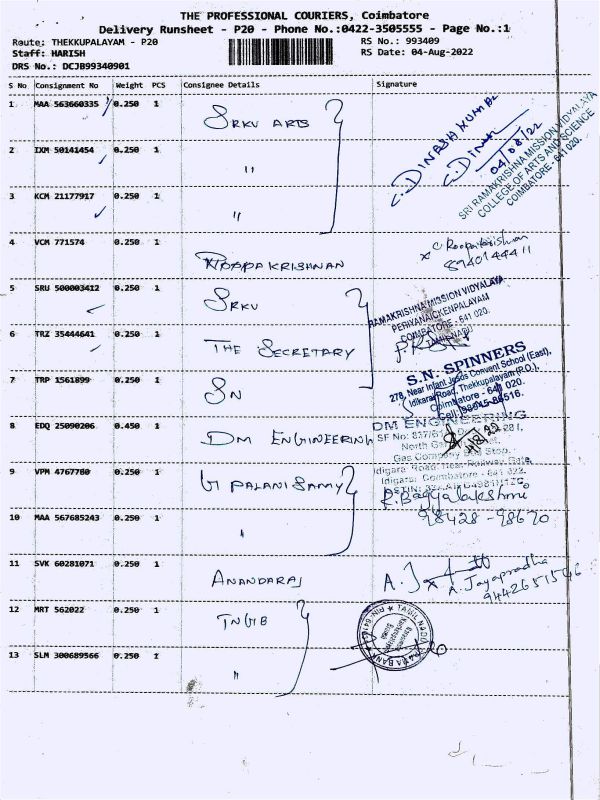 THE PROFESSIONAL COURIERS, Coimbatore
Delivery Runsheet - P20 - Phone No.:0422-3505555 - Page No.:1
Route: THEKKUPALAYAM - P20
RS No.: 993409
Staff: HARISH
RS Date: 04-Aug-2022
DRS No.: DCJB99340901
S No Consignment No Weight PCS Consignee Details Signature
1 MAA 563660335 0.250 1 SRKV ARTS
C. DINESHKUMAR
C. Dinesh
04/08/22
SRI RAMAKRISHNA MISSION VIDYALAYA
COLLEGE OF ARTS AND SCIENCE
COIMBATORE - 641 020.
2 IXM 50141454 0.250 1 "
3 KCM 21177917 0.250 1 "
4 VCM 771574 0.250 1 ROOPA KRISHNAN
C Roopakrishnan
8940144411
5 SRU 500003412 0.250 1 SRKV
RAMAKRISHNA MISSION VIDYALAYA
PERIYANAICKENPALAYAM
COIMBATORE - 641 020.
TAMIL NADU
6 TRZ 35444641 0.250 1 THE SECRETARY
7 TRP 1561899 0.250 1 SN
S.N. SPINNERS
278, Near Infant Jesus Convent School (East),
Idikarai Road, Thekkupalayam (P.O.),
Coimbatore - 641 020.
8 EDQ 25090206 0.450 1 DM ENGINEERING
DM ENGINEERING
Gas Company Bus Stop,
Idigarai Road, Near Railway Gate,
9 VPM 4767760 0.250 1 G PALANISAMY
R. Bagyalakshmi
98428-98670
10 MAA 567685243 0.250 1 "
11 SVK 60281071 0.250 1 ANANDARAJ
A. Jayapradha
9442651546
12 MRT 562022 0.250 1 TNGB
TAMIL NADU GRAMA BANK
13 SLM 300689566 0.250 1 "